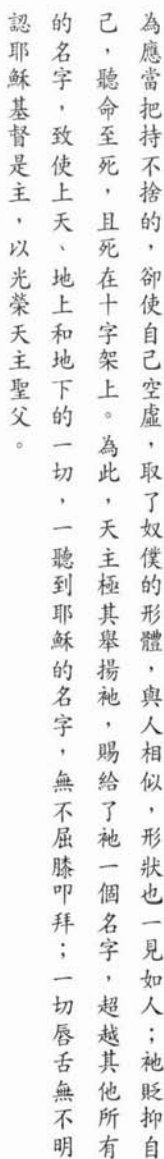 為應當把持不捨的，卻使自己空虛，取了奴僕的形體，與人相似，形狀也一見如人；祂貶抑自
己，聽命至死，且死在十字架上。為此，天主極其舉揚祂，賜給了祂一個名字，超越其他所有
的名字，致使上天、地上和地下的一切，一聽到耶穌的名字，無不屈膝叩拜；一切唇舌無不明
認耶穌基督是主，以光榮天主聖父。